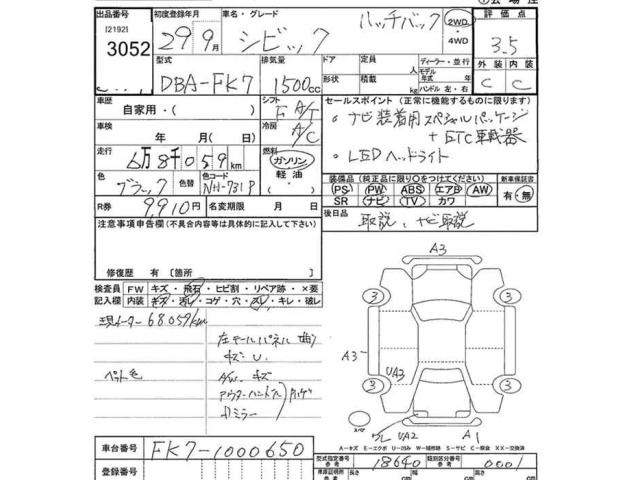 出品番号
[2192]
3052
初度登録年月
29年9月
車名・グレード
シビック
ハッチバック
2WD
4WD
評価点
3.5
外装
内装
C
C
型式
DBA-FK7
排気量
1500cc
ドア
形状
定員
人
積載
kg
ディーラー・並行
モデル
年式
年
ハンドル 左・右
車歴
自家用・( )
シフト
F A/T
車検
年 月( )
冷房
A/C
走行
6万8千059km
燃料
ガソリン
軽油・
色
ブラック
色替
色コード
NH-731P
R券
9,910円
名変期限 月 日
セールスポイント(正常に機能するものに限ります)
・ナビ装着用スペシャルパッケージ
+ETC車載器
・LEDヘッドライト
装備品(純正品に限り○をつけてください)
新車保証書
PS PW ABS エアB AW
有・無
SR ナビ TV カワ
後日品
取説、ナビ取説
注意事項申告欄(不具合内容等は具体的に記入して下さい)
修復歴 有〔箇所 〕
検査員
記入欄
FW
キズ・飛石・ヒビ割・リペア跡・×要
内装
キズ・汚レ・コゲ・穴・スレ・キレ・破レ
現メーター68.059km
左テールパネル曲り
キズU.
ペット毛
A/W.キズ
アウターハンドル
ドアミラー
ハゲ
A3
3
3
A3
UA3
3
3
UA2
A1
スペア
A-キズ E-エクボ U-凹み W-補修跡 S-サビ C-腐食 XX-交換済
車台番号
FK7-1000650
登録番号
型式指定番号
参考
18640
類別区分番号
参考
0001
長さ
幅
高さ